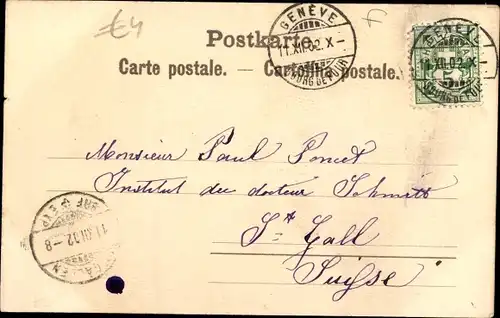 €4
GENÈVE
Postkarte.
11.XII.02.X –
Carte postale. — Cartolina postale.
BOURG DE FOUR
GENÈVE
11.XII.02.X
5
BOURG DE FOUR
Monsieur Paul Poncet
Institut du docteur Schmitt
St Gall
Suisse
11.XII.02.–8
ST. GALLEN